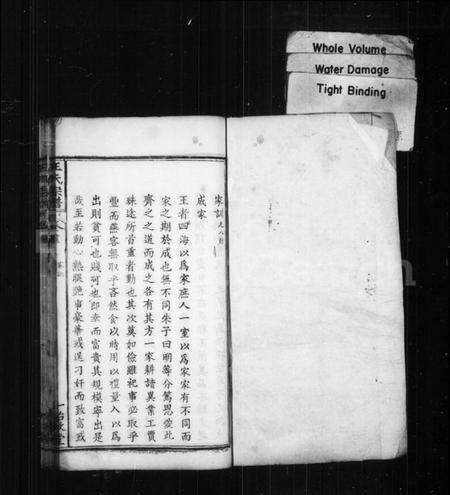 Whole Volume
Water Damage
Tight Binding
家訓 凡八則
成家
王者四海以為家庶人一室以為家家有不同而
家之期於成也無不同朱子曰明等分篤恩愛此
齊之之道而成之各有其方一家耕讀異業工賈
殊途所首重者勤也其次莫如儉雖祀事必取乎
豐而燕客無取乎吝然食以時用以禮量入以為
出則貧可也賤可也即幸而富貴其規模率出是
哉至若勤心熱腸艷事豪華或逞刁奸而致富或
王氏宗譜